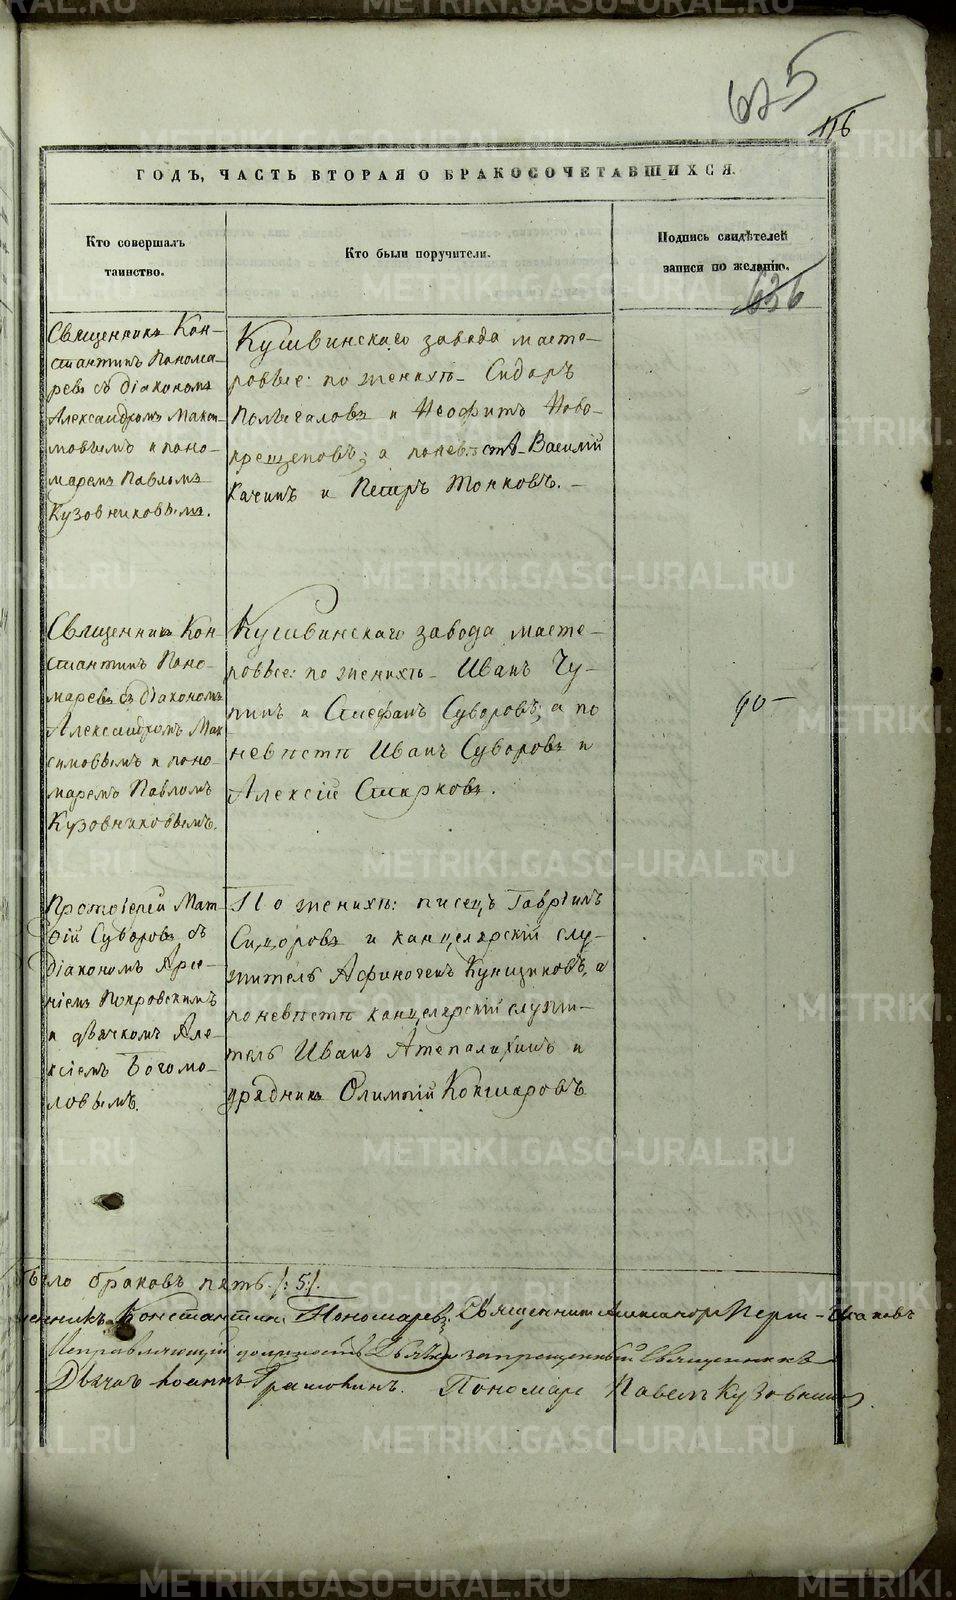 625
116
ГОДЪ, ЧАСТЬ ВТОРАЯ О БРАКОСОЧЕТАВШИХСЯ.
Кто совершалъ
таинство.
Кто были поручители.
Подпись свидѣтелей
записи по желанію.
636
Священникъ Кон-
стантинъ Понома-
ревъ съ діакономъ
Александромъ Макси-
мовымъ и поно-
маремъ Павломъ
Кузовниковымъ.
Кушвинскаго завода масте-
ровые: по женихѣ Сидоръ
и Неофитъ Ново-
крещеновъ; а по невѣстѣ Василій
Качинъ и Петръ Тонковъ.
Священникъ Кон-
стантинъ Поно-
маревъ съ діакономъ
Александромъ Мак
симовымъ и поно-
маремъ Павломъ
Кузовниковымъ.
Кушвинскаго завода масте-
ровые: по женихѣ Иванъ Чу-
пинъ и Стефанъ Суворовъ, а по
невѣстѣ Иванъ Суворовъ и
Алексій
Протоіерей Мат
ѳій Суворовъ съ
діакономъ Арсе-
ніемъ Покровскимъ
и дьячкомъ Але-
ксіемъ Богомо-
ловымъ.
По женихѣ: писецъ Гавріилъ
Сидоровъ и канцелярскій слу-
житель Афиногенъ Кунщиковъ, а
по невѣстѣ канцелярскій служи-
тель Иванъ и
урядникъ Олимпій Кокшаровъ
было браковъ пять /:5:/.
Константинъ Пономаревъ. Священникъ Александръ
должность запрещенный Священникъ
Дьячекъ Іоаннъ Пономарь Павелъ Кузовниковъ
METRIKI.GASO-URAL.RU